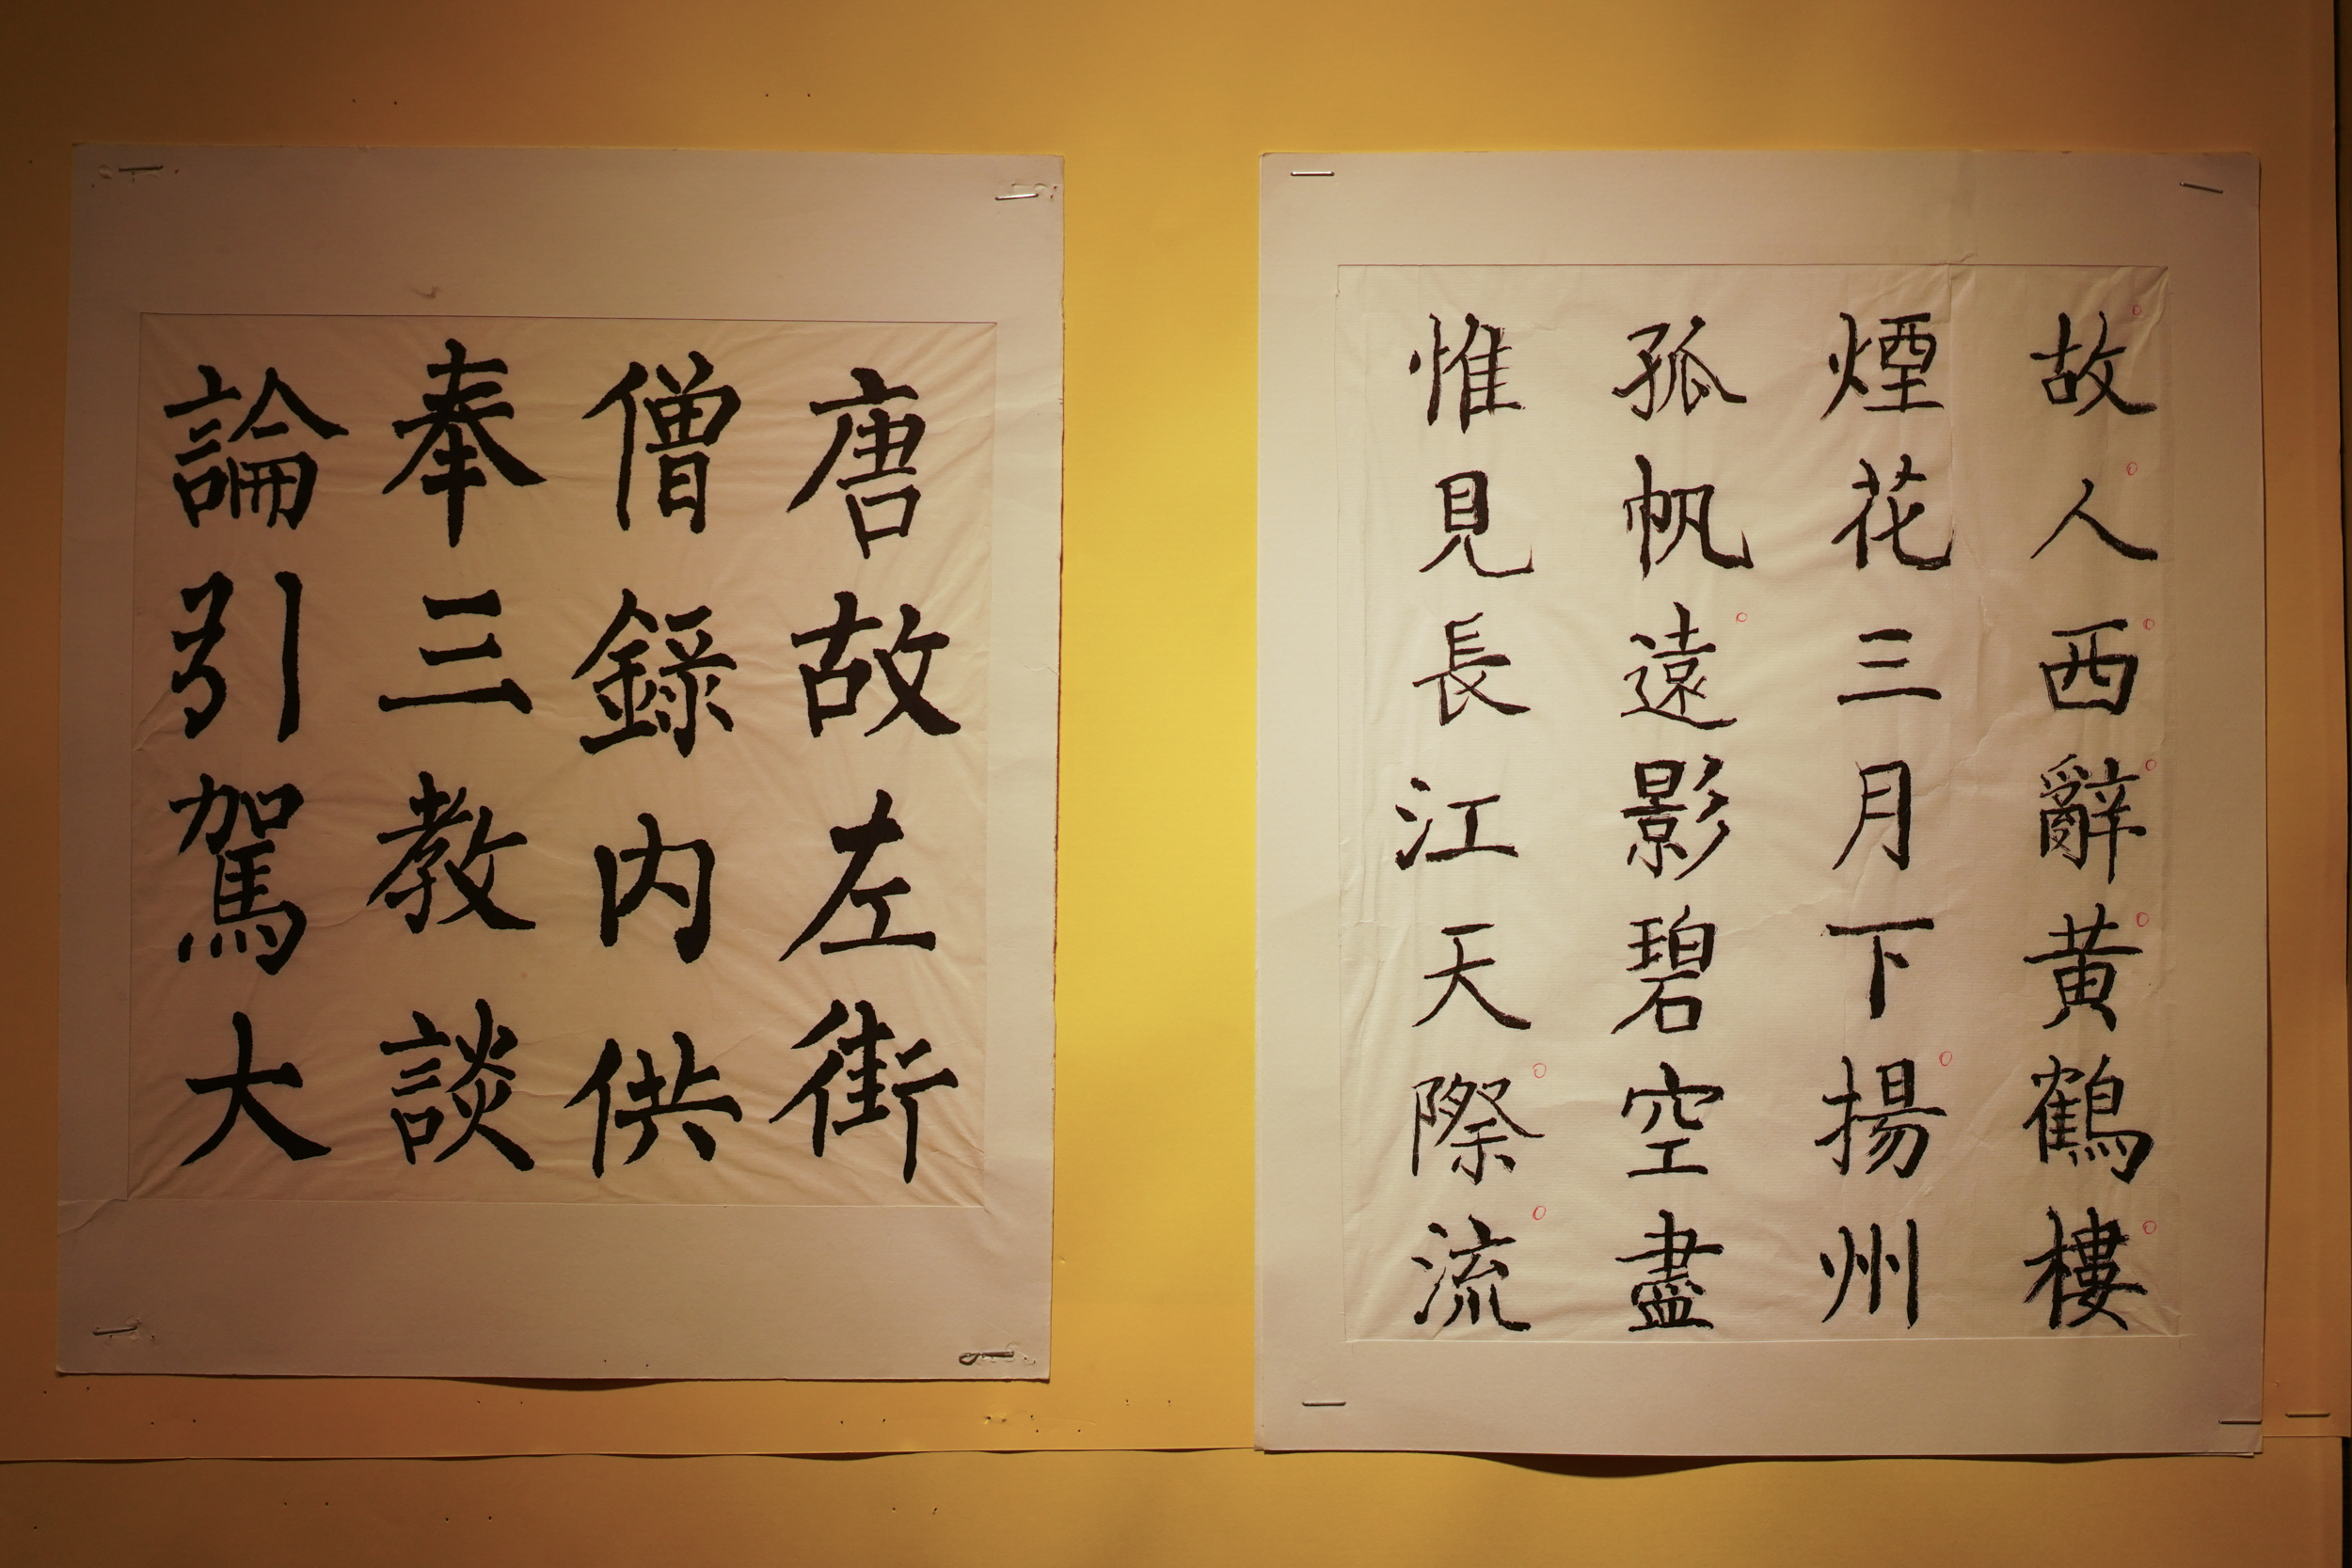 故人西辭黃鶴樓
煙花三月下揚州
孤帆遠影碧空盡
惟見長江天際流
唐故左街
僧錄內供
奉三教談
論引駕大